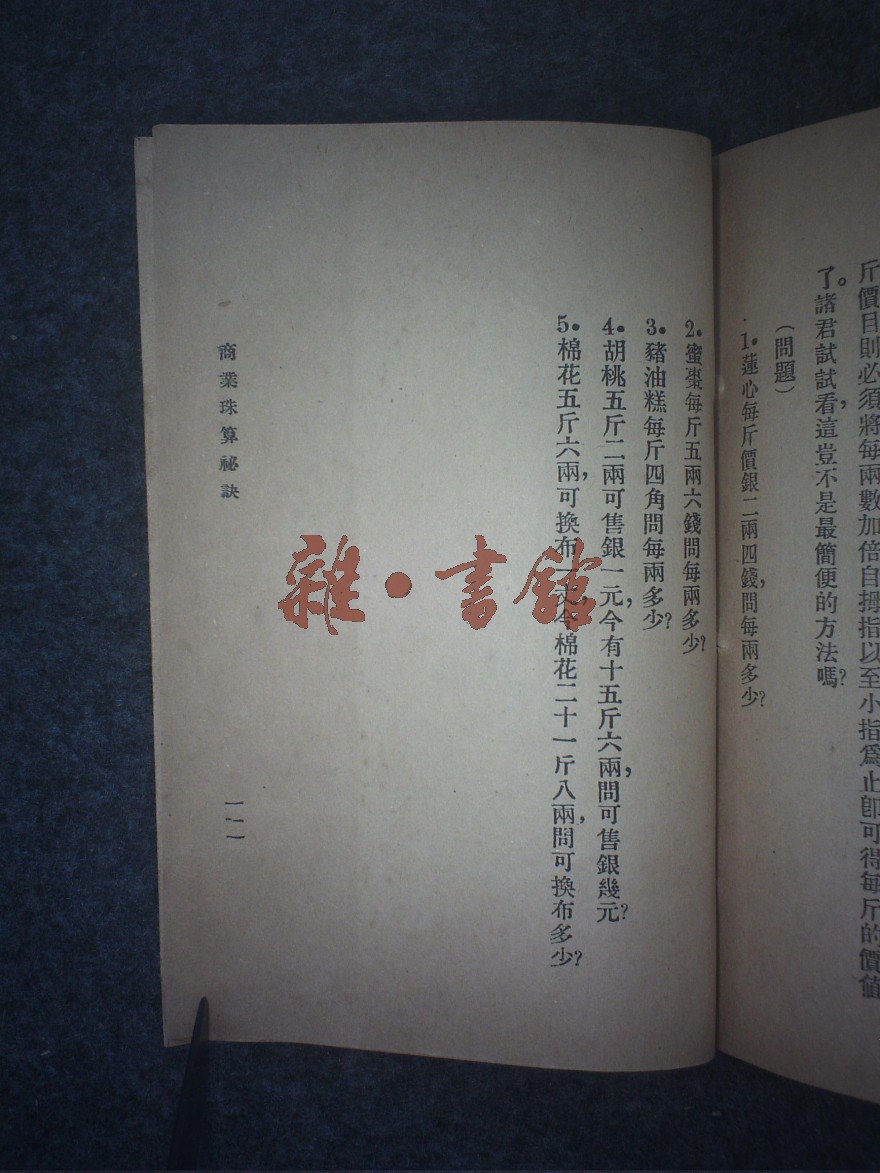 斤價目則必須將每兩數加倍自拇指以至小指爲止卽可得每斤的價值
了。諸君試試看,這豈不是最簡便的方法嗎?
(問題)
1.蓮心每斤價銀二兩四錢,問每兩多少?
2.蜜棗每斤五兩六錢問每兩多少?
3.豬油糕每斤四角問每兩多少?
4.胡桃五斤二兩可售銀一元,今有十五斤六兩,問可售銀幾元?
5.棉花五斤六兩,可換布一丈今棉花二十一斤八兩,問可換布多少?
商業珠算祕訣
一一一
雜·書館